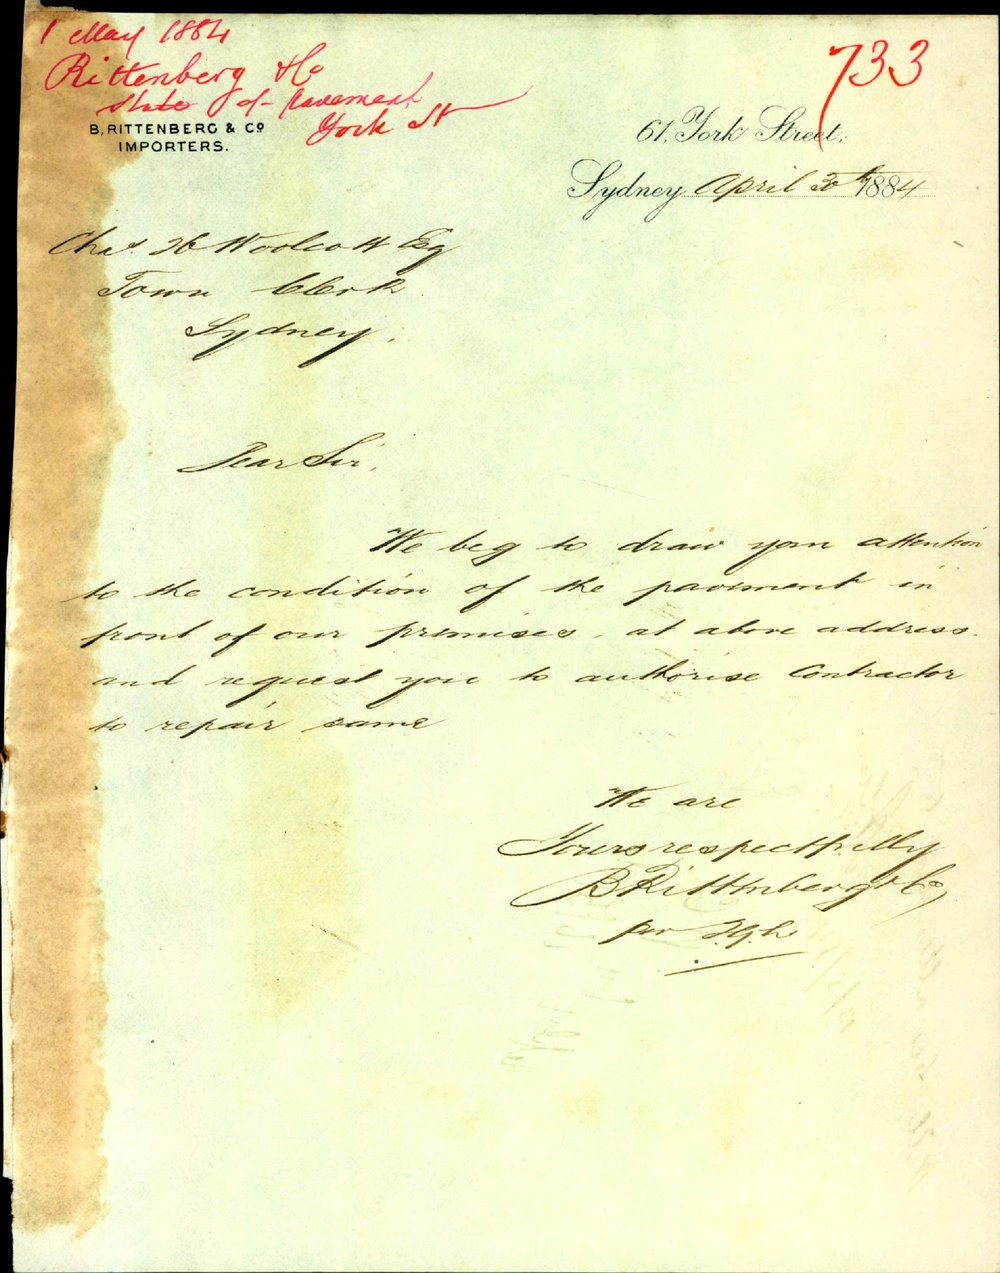 1 May 1884
Rittenberg & Co
State of Pavement
York St
733
B. RITTENBERG & Co
IMPORTERS.
61, York Street,
Sydney April 30th 1884
Chas. H Woolcott Esq
Town Clerk
Sydney.
Dear Sir,
We beg to draw your attention
to the condition of the pavement in
front of our premises, at above address.
and request you to authorise Contractor
to repair same
We are
Yours respectfully
B Rittenberg & Co,
per